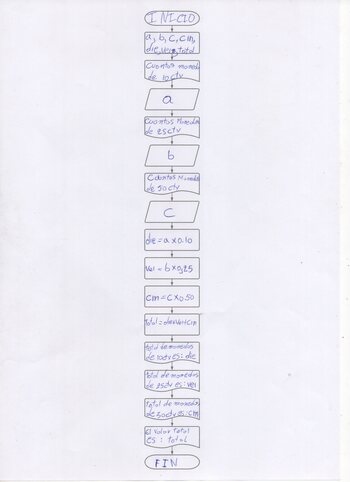 INICIO
a, b, c, cm,
die, vei, total
Cuantas moneda
de 10ctv
a
Cuantas monedas
de 25ctv
b
Cuantas moneda
de 50ctv
c
die = a x 0.10
vei = b x 0,25
cm = c x 0.50
total = die+vei+cm
total de monedas
de 10ctv es: die
total de monedas
de 25ctv es: vei
total de monedas
de 50ctv es: cm
el valor total
es : total
FIN